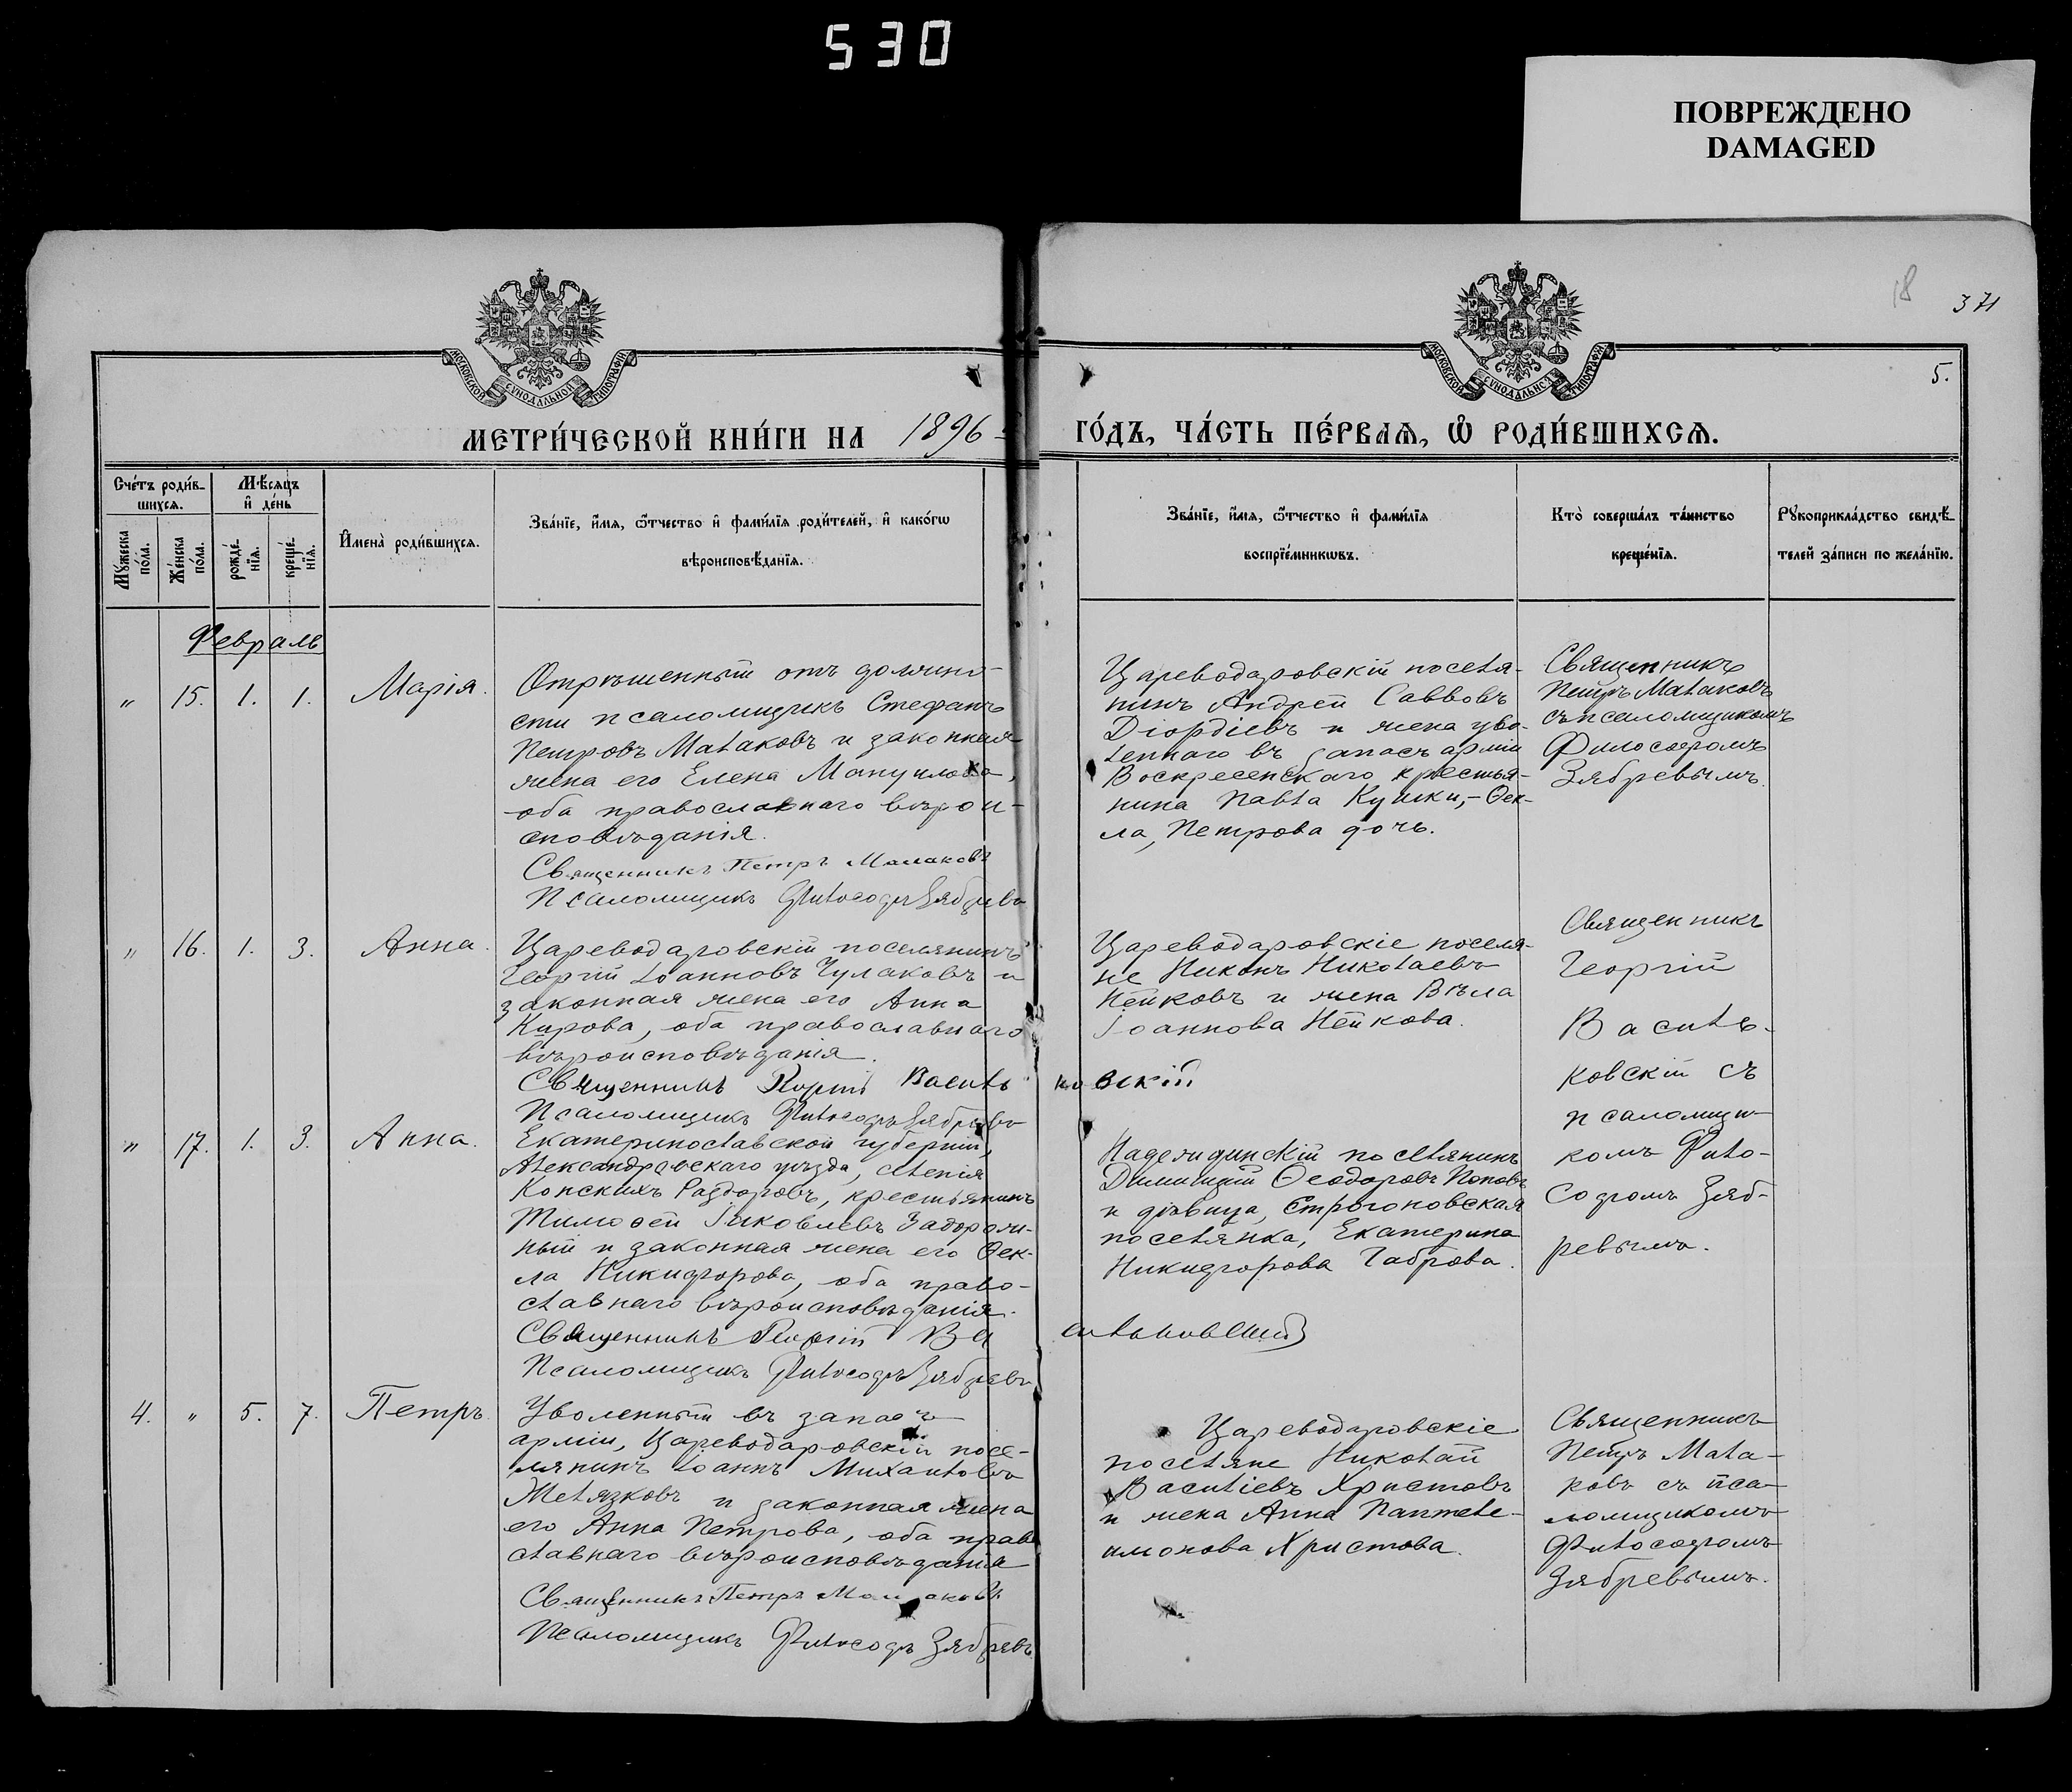 530
ПОВРЕЖДЕНО
DAMAGED
18
371
МОСКОВСКОЙ СУНОДАЛЬНОЙ ТИПОГРАФІИ
МОСКОВСКОЙ СУНОДАЛЬНОЙ ТИПОГРАФІИ
5.
МЕТРИ́ЧЕСКОЙ КНИ́ГИ НА 1896
ГО́ДЪ, ЧА́СТЬ ПЕ́РВАѦ, Ѡ РОДИ́ВШИХСѦ.
Сче́тъ роди́в-
шихсѧ.
Мѣ́сѧцъ
и҆ де́нь
Мꙋ́жеска
по́ла.
Же́нска
по́ла.
рожде́-
нїѧ.
креще́-
нїѧ.
И҆мена̀ роди́вшихсѧ.
Зва́нїе, и҆́мѧ, ѻ҆́тчество и҆ фами́лїѧ роди́телей, и҆ како́гѡ
вѣроисповѣ́данїѧ.
Зва́нїе, и҆́мѧ, ѻ҆́тчество и҆ фами́лїѧ
воспрїе́мникѡвъ.
Кто̀ соверша́лъ та́инство
креще́нїѧ.
Рꙋкоприкла́дство свидѣ́-
телей за́писи по жела́нїю.
Февраль
" 15. 1. 1. Марія.
Отрѣшенный отъ должно-
сти псаломщикъ Стефанъ
Петровъ Малаковъ и законная
жена его Елена Мануилова,
оба православнаго вѣрои-
сповѣданія.
Священникъ Петръ Малаковъ
Псаломщикъ Филосоѳъ Зябревъ
Цареводаровскій поселя-
нинъ Андрей Саввовъ
Діордіевъ и жена уво-
леннаго въ запасъ арміи
Воскресенскаго крестья-
нина Павла Кушки,- Ѳек-
ла, Петрова дочь.
Священникъ
Петръ Малаковъ
съ псаломщикомъ
Философомъ
Зябревымъ.
" 16. 1. 3. Анна.
Цареводаровскій поселянинъ
Георгій Іоанновъ Чулаковъ и
законная жена его Анна
Кирова, оба православнаго
вѣроисповѣданія.
Священникъ Георгій Василь ковскій
Псаломщикъ Философъ Зябревъ
Цареводаровскіе поселя-
не Никонъ Николаевъ
Пейковъ и жена Вѣла
Іоаннова Пейкова.
Священникъ
Георгій
Василь-
ковскій съ
псаломщи-
комъ Фило-
софомъ Зяб-
ревымъ.
" 17. 1. 3. Анна.
Екатеринославской губерніи,
Александровскаго уѣзда, селенія
Конскихъ Раздоровъ, крестьянинъ
Тимоѳей Яковлевъ Задорож-
ный и законная жена его Ѳек-
ла Никифорова, оба право-
славнаго вѣроисповѣданія.
Священникъ Георгій Ва сильковскій
Псаломщикъ Философъ Зябревъ
Надеждинскій поселянинъ
Димитрій Ѳеодоровъ Поповъ
и дѣвица, Строгоновская
поселянка, Екатерина
Никифорова Габрова.
4. " 5. 7. Петръ.
Уволенный въ запасъ
арміи, Цареводаровскій посе-
лянинъ Іоаннъ Михаиловъ
Желязковъ и законная жена
его Анна Петрова, оба право
славнаго вѣроисповѣданія
Священникъ Петръ Малаковъ
Псаломщикъ Философъ Зябревъ
Цареводаровскіе
поселяне Николай
Василіевъ Христовъ
и жена Анна Пантеле-
имонова Христова.
Священникъ
Петръ Мала-
ковъ съ пса-
ломщикомъ
Философомъ
Зябревымъ.